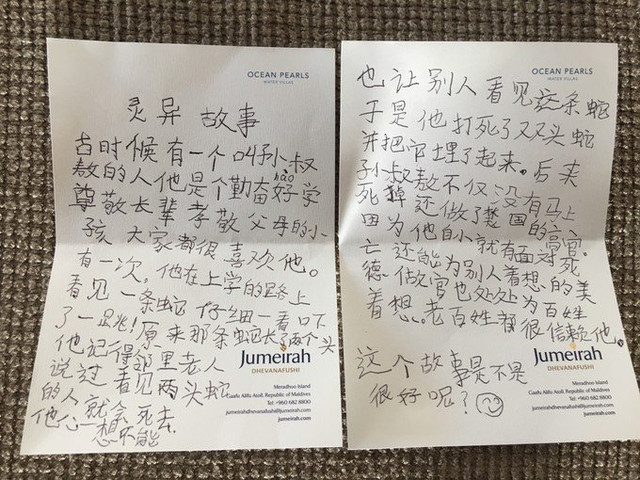 OCEAN PEARLS
WATER VILLAS
灵异 故事
古时候有一个叫孙叔
敖的人他是个勤奋好学
hào
尊敬长辈孝敬父母的小
孩 大家都很喜欢他。
有一次,他在上学的路上
看见一条蛇 仔细一看吓
了一跳!原来那条蛇长了两个头
他记得邻里老人
说过 看见两头蛇
的人就会死去
他心想不能
Jumeirah
DHEVANAFUSHI
Meradhoo Island
Gaafu Alifu Atoll, Republic of Maldives
Tel: +960 682 8800
jumeirahdhevanafushi@jumeirah.com
jumeirah.com
OCEAN PEARLS
WATER VILLAS
也让别人看见这条蛇
于是他打死了双头蛇
并把它埋了起来。后来
孙叔敖不仅没有马上
死掉还做了楚国的高官
因为他自小就有面对死
亡还能为别人着想的美
德 做官也处处为百姓
着想。老百姓都很信赖他。
这个故事是不是
很好呢?
Jumeirah
DHEVANAFUSHI
Meradhoo Island
Gaafu Alifu Atoll, Republic of Maldives
Tel: +960 682 8800
jumeirahdhevanafushi@jumeirah.com
jumeirah.com